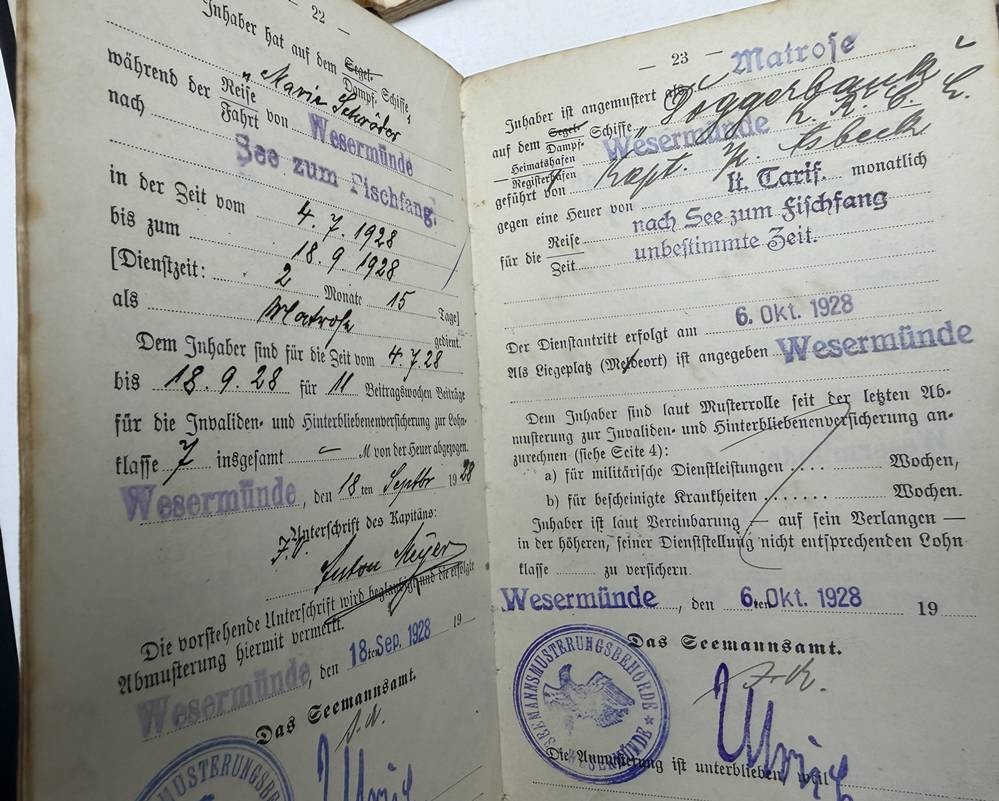 — 22 —
Inhaber hat auf dem Segel- Dampf- Schiffe
„Marie Schröder
während der Reise Fahrt von Wesermünde
nach See zum Fischfang.
in der Zeit vom 4. 7. 1928
bis zum 18. 9. 1928
[Dienstzeit: 2 Monate 15 Tage]
als Matrose gedient.
Dem Inhaber sind für die Zeit vom 4.7.28
bis 18.9.28 für 11 Beitragswochen Beiträge
für die Invaliden- und Hinterbliebenenversicherung zur Lohn-
klasse 7 insgesamt — M von der Heuer abgezogen.
Wesermünde, den 18ten Septbr 1928
Unterschrift des Kapitäns:
Anton Meyer
Die vorstehende Unterschrift wird beglaubigt und die erfolgte
Abmusterung hiermit vermerkt.
Wesermünde, den 18.ten Sep. 1928 19
Das Seemannsamt.
MUSTERUNGSBEHÖRDE
Ulrich
— 23 —
Matrose
Inhaber ist angemustert als
auf dem Segel- Dampf- Schiffe „Doggerbank“
Heimatshafen Registerhafen Wesermünde
geführt von Kapt. H.
gegen eine Heuer von lt. Tarif. monatlich
für die Reise Zeit nach See zum Fischfang
unbestimmte Zeit.
Der Dienstantritt erfolgt am 6. Okt. 1928
Als Liegeplatz (Meldeort) ist angegeben Wesermünde
Dem Inhaber sind laut Musterrolle seit der letzten Ab-
musterung zur Invaliden- und Hinterbliebenenversicherung an-
zurechnen (siehe Seite 4):
a) für militärische Dienstleistungen .... Wochen,
b) für bescheinigte Krankheiten ....... Wochen.
Inhaber ist laut Vereinbarung — auf sein Verlangen —
in der höheren, seiner Dienststellung nicht entsprechenden Lohn
klasse ........ zu versichern.
Wesermünde, den 6.ten Okt. 1928 19
Das Seemannsamt.
SEEMANNSMUSTERUNGSBEHÖRDE
WESERMÜNDE
Ulrich
Die Anmusterung ist unterblieben, weil